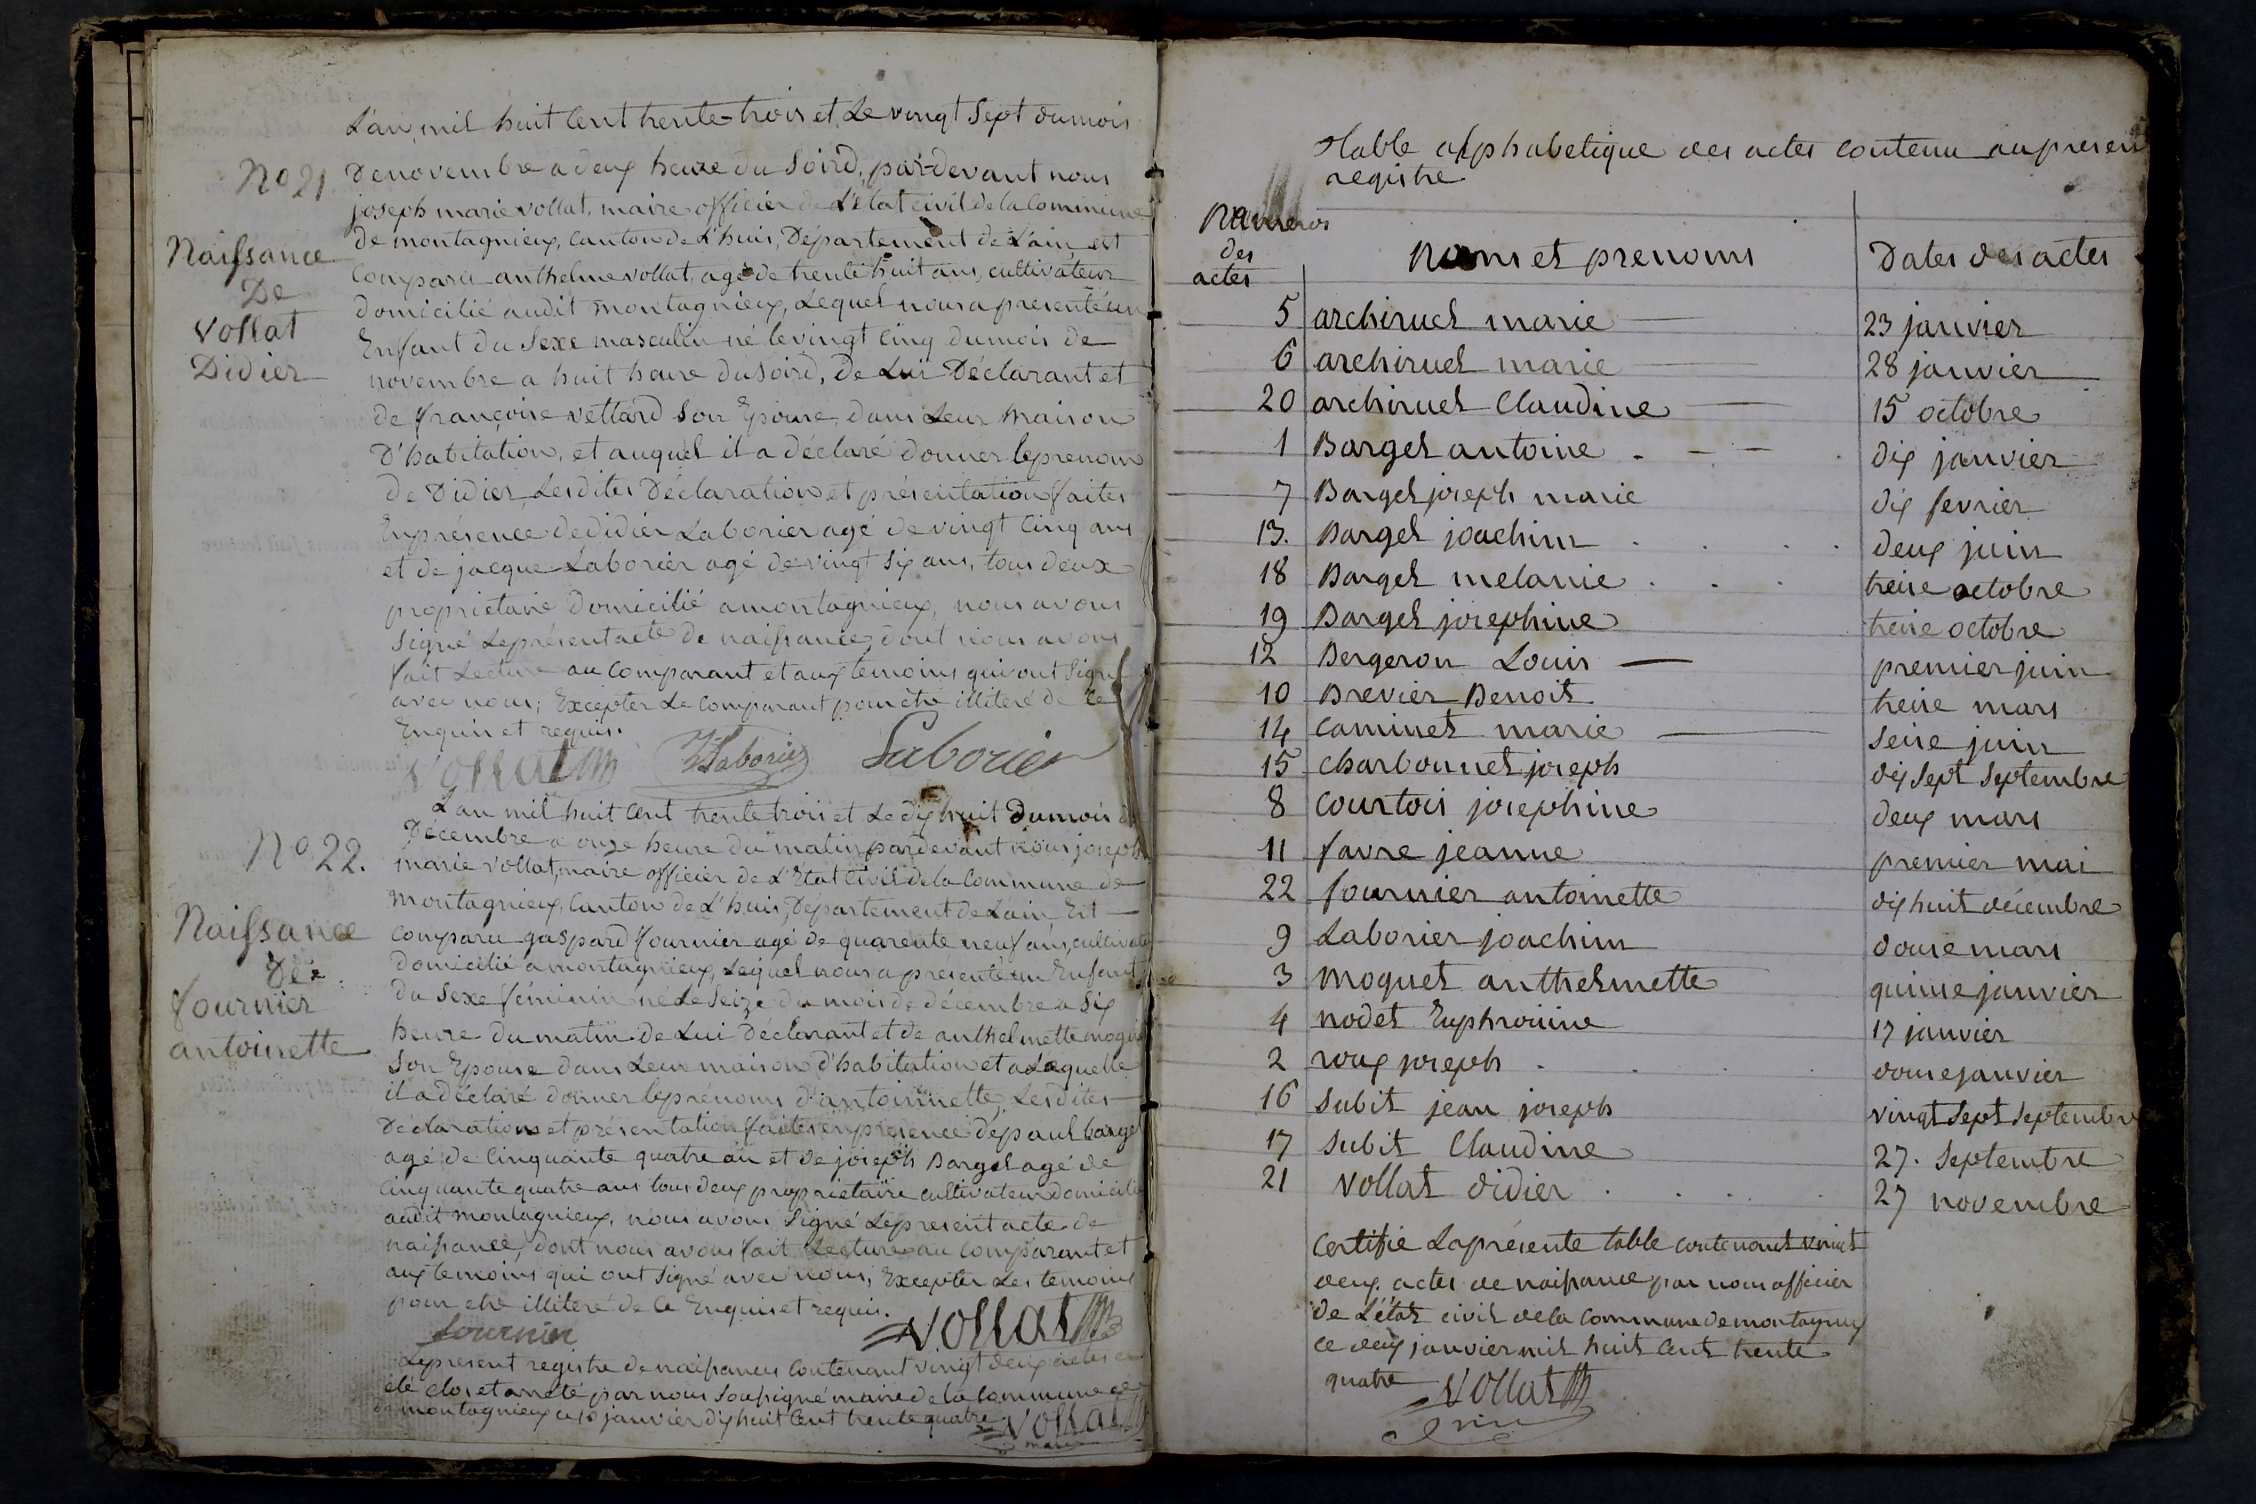 L'an mil huit Cent trente trois et Le vingt Sept du mois
No 21 De novembre a deux heure du Soird, par-devant nous
joseph marie vollat, maire officier de L'Etat civil de la Commune
de montagnieux, Canton de L'huis, Département de L'ain est
Naissance
De
Vollat
Didier
Comparu anthelme vollat, agé de trente huit ans, cultivateur
domicilié audit montagnieux, Lequel nous a presenté un
Enfant du Sexe masculin né le vingt Cinq du mois de
novembre a huit heure du Soird, De Lui Déclarant et
de françoise vettard Son Epouse, dans Leur maison
D'habitation, et auquel il a déclaré donner le prenom
de Didier Lesdites Déclaration et présentation faites
En présence de didier Laborier agé de vingt Cinq ans
et de jacque Laborier agé de vingt Six ans, tous deux
proprietaire domicilié a montagnieux, nous avons
Signé Le présent acte de naissance, dont nous avons
fait Lecture au Comparant et aux temoins qui ont Signé
avec nous; Excepter Le Comparant pour etre illiteré de Ce
Enquis et requis.
Vollat Laborier Laborier
L'an mil huit Cent trente trois et Le dix huit Du mois de
No 22. Décembre a onze heure du matin pardevant nous joseph
marie Vollat, maire officier de L'Etat Civil de la Commune de
montagnieux, Canton de L'huis, Département de L'ain Est
Naissance
De
fournier
antoinette
Comparu gaspard fournier agé de quarente neuf ans, cultivateur
Domicilié a montagnieux, Lequel nous a présenté un Enfant
du Sexe féminin né Le Seize du mois de décembre a Six
heure du matin De Lui Déclarant et de anthelmette
Son Epouse dans Leur maison d'habitation et a Laquelle
il a déclaré donner le prénoms d'antoinette, Lesdites
Déclaration et présentation faites en présence de paul bargel
agé de Cinquante quatre an et de joseph Bargel agé de
Cinquante quatre ans tous deux proprietaire cultivateur domicilié
audit montagnieux, nous avons Signé Le present acte de
naissance, dont nous avons fait Lecture au Comparant et
aux temoins qui ont Signé avec nous, Excepter Les temoins
pour etre illiteré de Ce Enquis et requis.
fournier Vollat
Le present registre de naissances Contenant vingt deux actes a
été clos et arreté par nous Soussigné maire de la Commune de
montagnieux ce janvier dix huit Cent trente quatre. Vollat
maire
Table alphabetique des actes contenu au present
registre
Numeros
des
actes
Noms et prenoms Dates des actes
5 archiruel marie 23 janvier
6 archiruel marie 28 janvier
20 archiruel Claudine 15 octobre
1 Bargel antoine dix janvier
7 Bargel joseph marie dix fevrier
13. Bargel joachim deux juin
18 Bargel melanie treise octobre
19 Bargel josephine treise octobre
12 Bergeron Louis premier juin
10 Brevier Benoit treise mars
14 Caminet marie seise juin
15 Charbonnet joseph dix sept Septembre
8 Courtois josephine deux mars
11 favre jeanne premier mai
22 fournier antoinette dix huit décembre
9 Laborier joachim douse mars
3 Moquet anthelmette quinse janvier
4 nodet Euphrosine 17 janvier
2 roux joseph douse janvier
16 Subit jean joseph vingt Sept Septembre
17 Subit Claudine 27. Septembre
21 Vollat didier 27 novembre
Certifie La présente table contenant vingt
deux actes de naissance par nous officier
de L'état civil de la Commune de montagnieux
ce deux janvier mil huit Cent trente
quatre Vollat